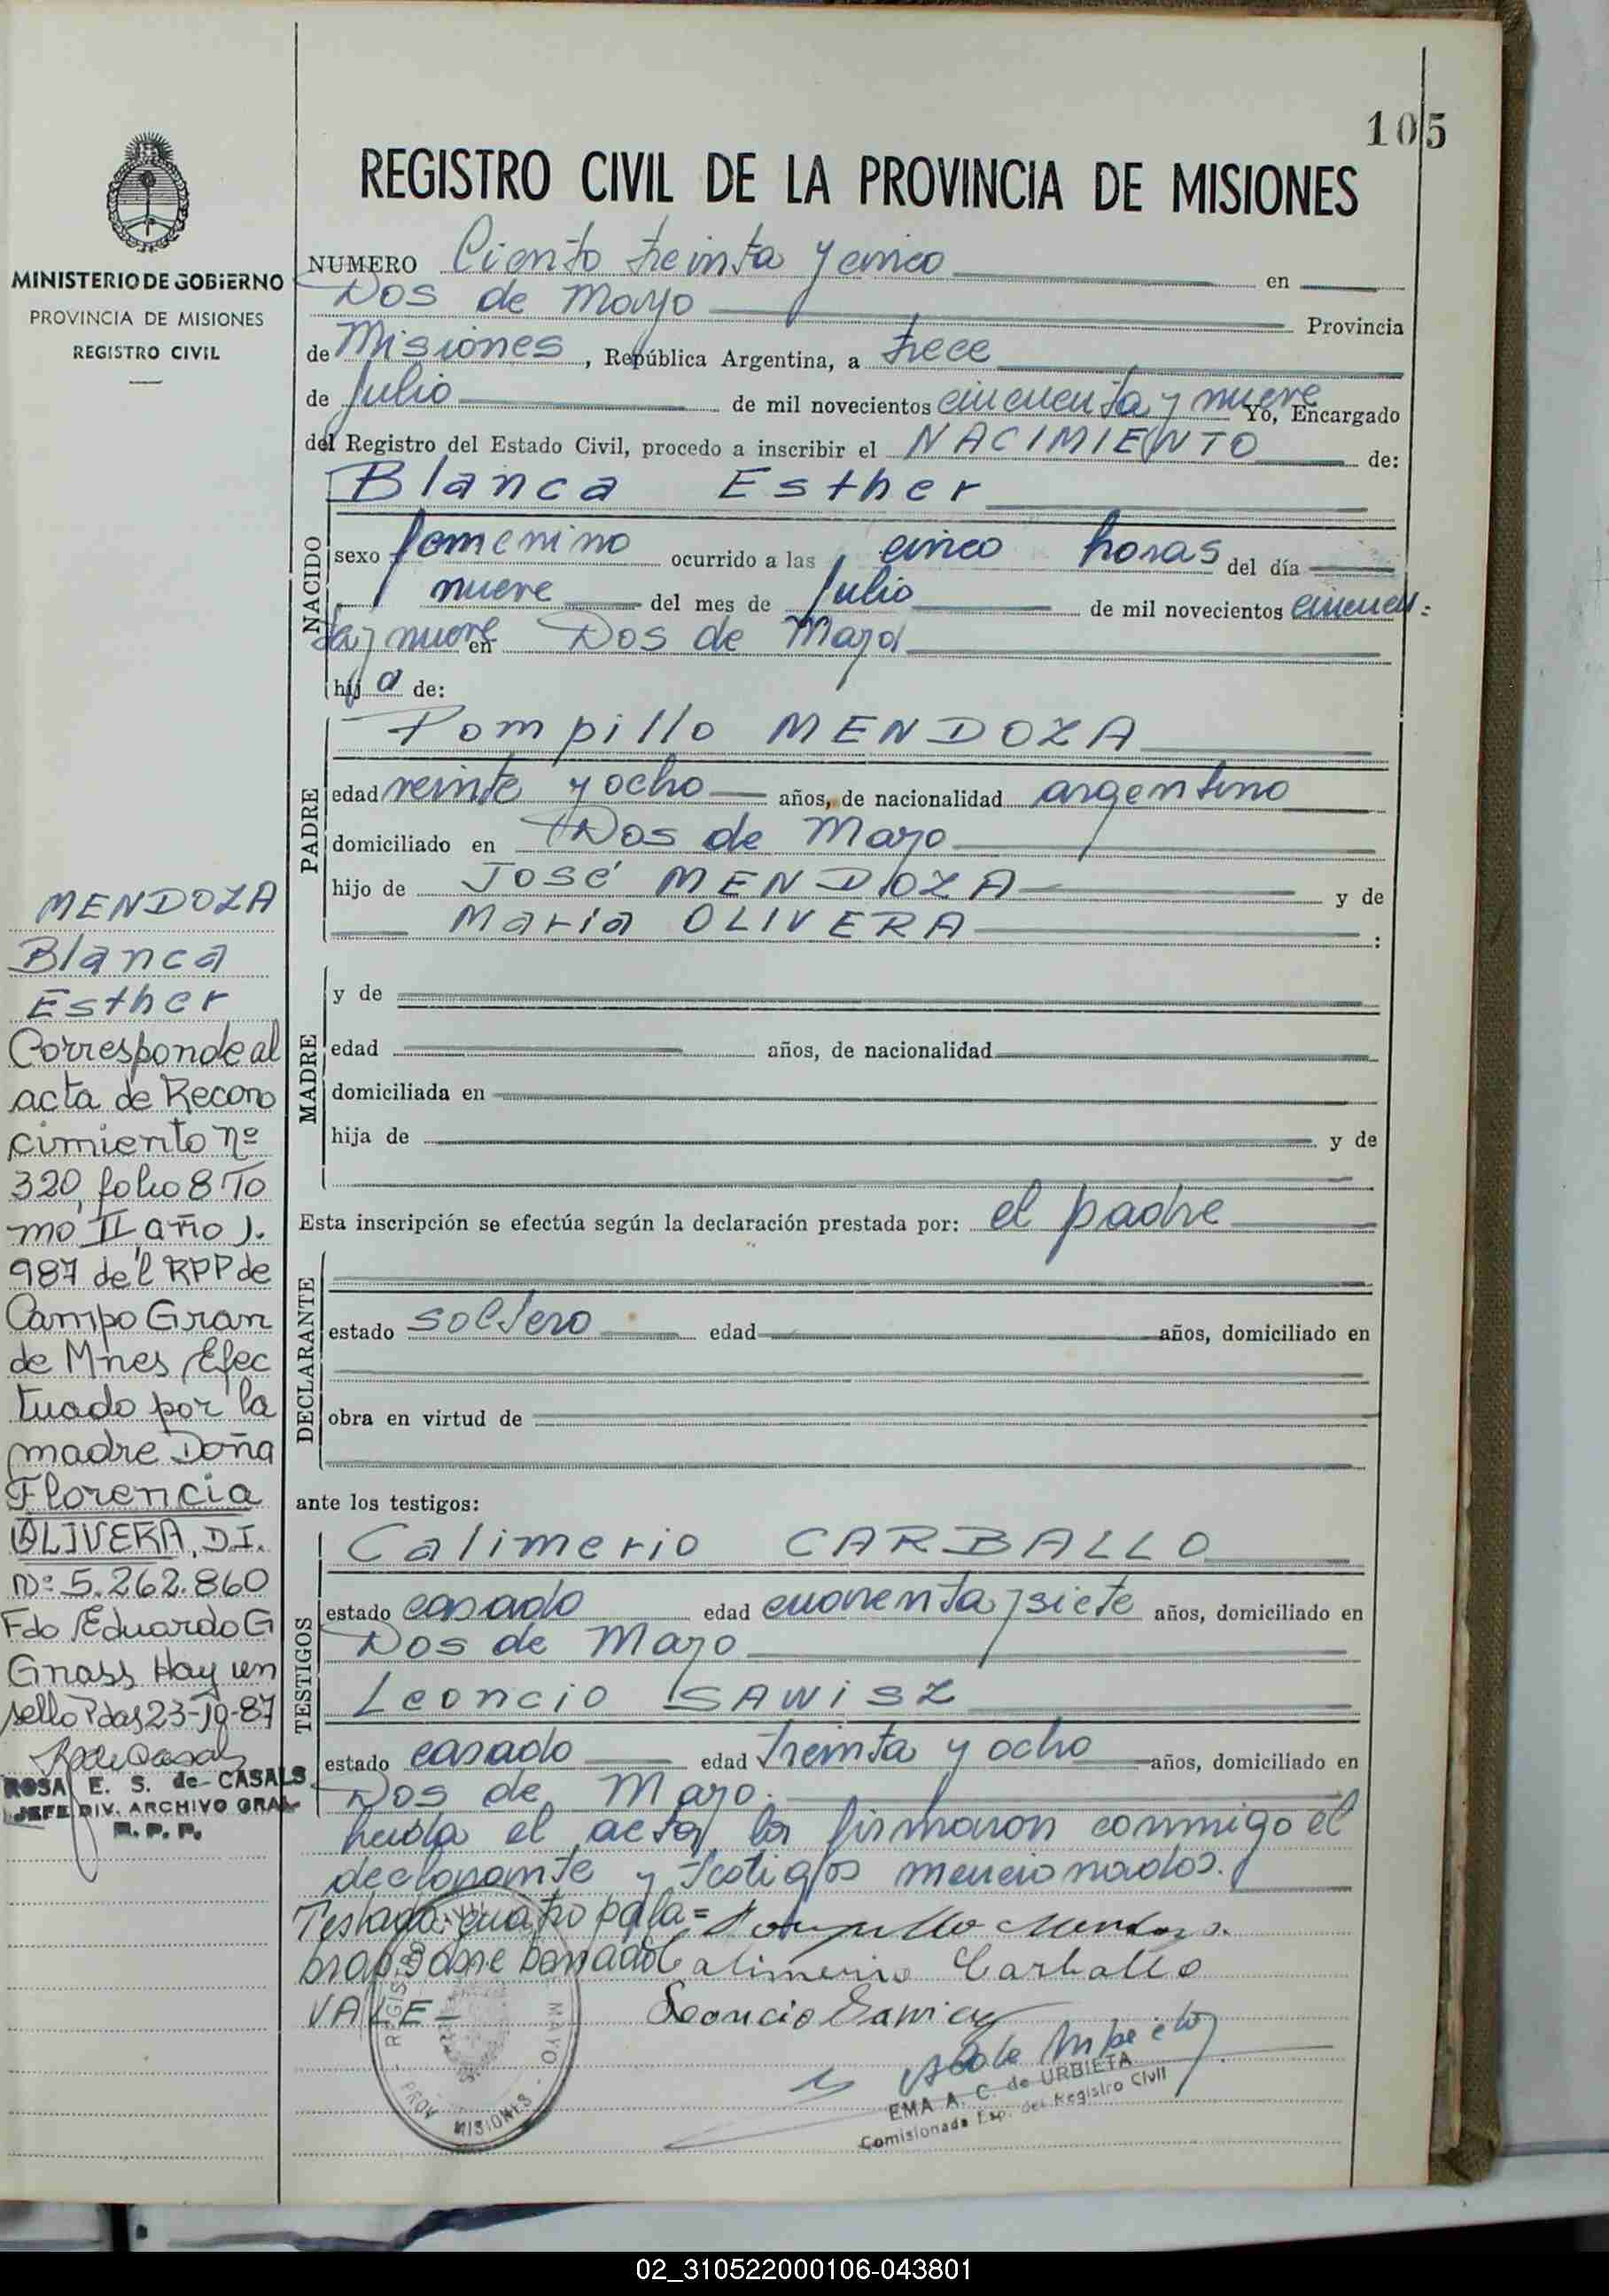 105
REGISTRO CIVIL DE LA PROVINCIA DE MISIONES
MINISTERIO DE GOBIERNO
PROVINCIA DE MISIONES
REGISTRO CIVIL
NUMERO Ciento treinta y cinco en
Dos de Mayo Provincia
de Misiones, República Argentina, a trece
de Julio de mil novecientos cincuenta y nueve Yo, Encargado
del Registro del Estado Civil, procedo a inscribir el NACIMIENTO de:
NACIDO
Blanca Esther
sexo femenino ocurrido a las cinco horas del día
nueve del mes de Julio de mil novecientos cincuen=
ta y nueve en Dos de Mayo
hija de:
PADRE
Pompillo MENDOZA
edad veinte y ocho años, de nacionalidad argentino
domiciliado en Dos de Mayo
hijo de José MENDOZA y de
Maria OLIVERA :
MADRE
y de
edad años, de nacionalidad
domiciliada en
hija de y de
Esta inscripción se efectúa según la declaración prestada por: el padre
DECLARANTE
estado soltero edad años, domiciliado en
obra en virtud de
ante los testigos:
TESTIGOS
Calimerio CARBALLO
estado casado edad cuarenta y siete años, domiciliado en
Dos de Mayo
Leoncio SAWISZ
estado casado edad treinta y ocho años, domiciliado en
Dos de Mayo.
leida el acta la firmaron conmigo el
declarante y testigos mencionados.
Testado: cuatro pala=
bras Sobre borrado
VALE-
Pompillo Mendoza.
Calimerio Carballo
Leoncio Sawicz
EMA A. C. de URBIETA
Comisionada Esp. del Registro Civil
REGIS
MAYO
PROV. MISIONES
MENDOZA
Blanca
Esther
Corresponde al
acta de Recono
cimiento nº
320, folio 8 To
mo II año 1.
987 del RPP de
Campo Gran
de Mnes, Efec
tuado por la
madre Doña
Florencia
OLIVERA, D.I.
nº: 5.262.860
Fdo Eduardo G
Grass Hay un
sello Pdas 23-10-87
ROSA E. S. de CASALS
JEFE DIV. ARCHIVO GRAL
R. P. P.
02_310522000106-043801